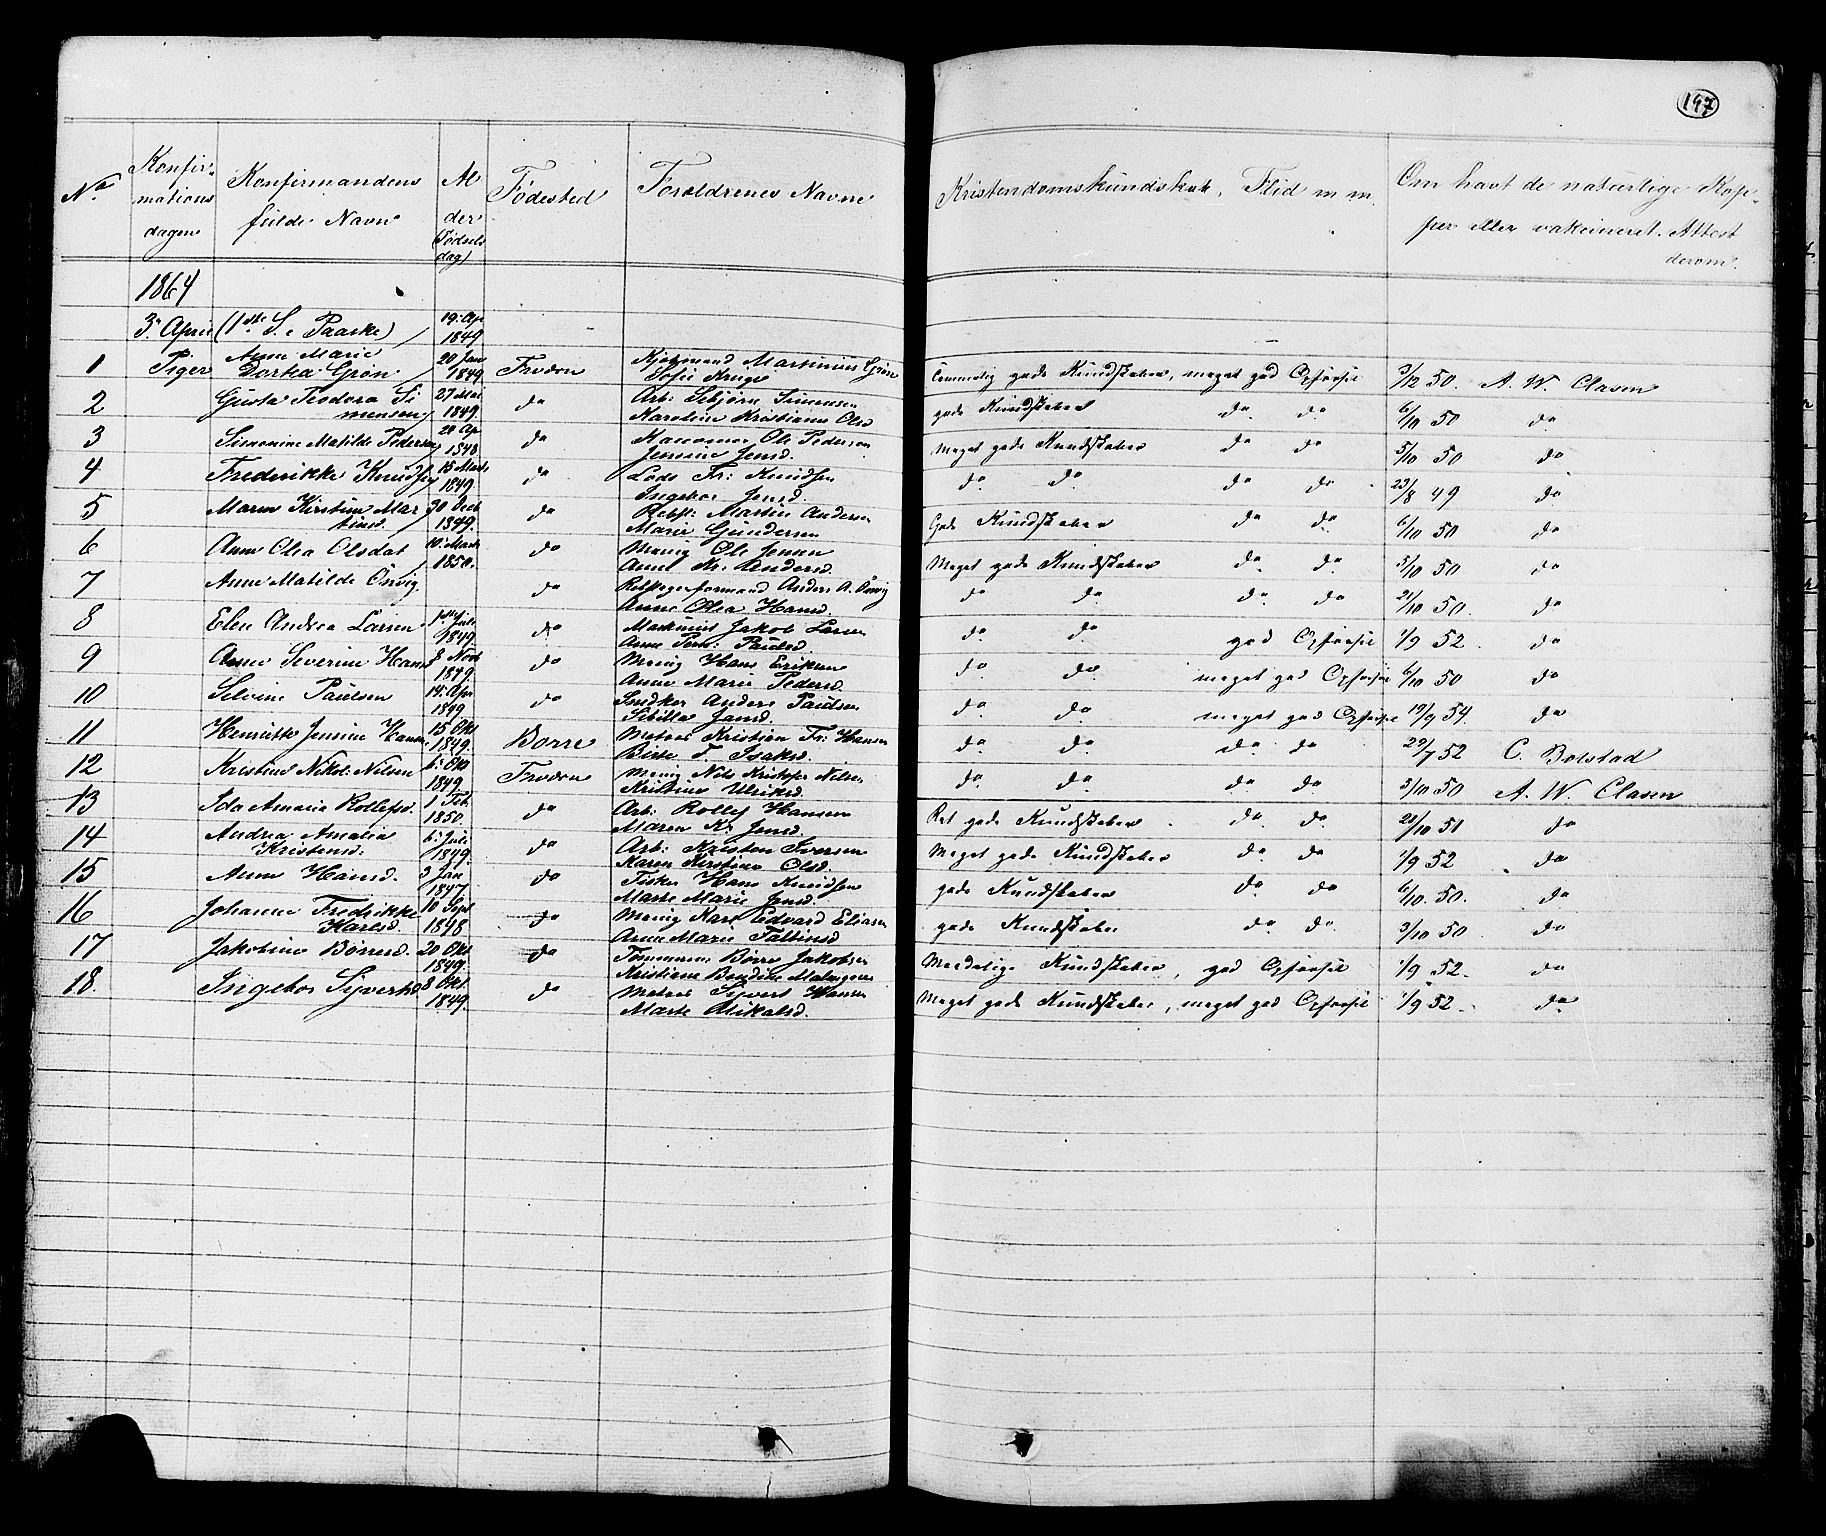 197
No Konfirmations dagen Konfirmandens fulde Navn Alder (Fødselsdag) Fødested Foroldrenes Navne Kristendomskundskab, Flid m m. Om havt de naturlige Kopper eller vakcineret. Attest derom.
1864
3. April (1ste S. e Paaske)
1 Piger Anne Marie Dorthea Grøn 19. Ap 1849 Kjøbmand Martinius Grøn Temmelig gode Kundskaber, meget god Opførsel 3/12 50. A. W. Clasen
2 Gusta Teodora Simensen 20 Jan 1849 do Arb: Simensen Karoline Kristiane Ols gode Kundskaber do do 6/10 50 do
3 Simonine Matilde Pedersen 27 Mai 1849. do Ole Pederson Jensine Jensd. Meget gode Kundskaber do do 5/10 50 do
4 Frederikke Knudsen 20 Ap 1848 do Lods Fr: Knudsen Ingebor Jensd. do do do do 23/8 49 do
5 Maren Kirstine Martinsd. 15 Marts 1849. do Rebsl: Martin Andersen Marie Gundersen Gode Kundskaber do do 6/10 50 do
6 Anne Olea Olsdat 30 Decb 1849. do Menig Ole Jensen Anne Kr: Andersd. Meget gode Kundskaber do do 5/10 50 do
7 Anne Matilde Önvig 10. Marts 1850. do Anders A. Önvig Anne Olea Hansd. do do do do 21/10 50. do
8 Elen Andrea Larsen 1ste Juli 1849 do Jakob Larsen Anne Paulsd. do do god Opførsel 1/9 52 do
9 Anne Severine Hans 8 Novb 1849. do Menig Hans Eriksen Anne Marie Pedersd. do do meget god Opførsel 6/10 50 do
10 Selvine Paulsen 14. Apr 1849 do Snedker Anders Paulsen Sibilla Jansd. do do meget god Opførsel 19/9 54. do
11 Henriette Jensine Hansen 15 Okt 1849. Borre Matros Kristian Fr: Hansen Birte T. Isaksd. do do do do 29/7 52 C. Bolstad
12 Kristine Nikol: Nilsen 6: Okt 1849. Menig Nils Kristofer Nilsen Kristine Ulriksd. do do do do 3/10 50 A. W. Clasen
13 Ida Amalie Rollefsd. 1 Feb. 1850. do Arb: Rollef Hansen Maren Kr Jensd. Ret gode Kundskaber. do do. 21/10 51 do
14 Andrea Amalia Kristensd: 6: Juli 1849. do Arb: Kristen Iversen Karen Kirstine Olsd. Meget gode Kundskaber do do 1/9 52 do
15 Anne Hansd. 3 Jan 1847. do Fisker Hans Knudsen Marte Marie Jensd. gode Kundskaber do do 6/10. 50. do
16 Johanne Fredrikke Karlsd. 10 Sept 1848 do Menig Karl Edvard Eliasen Anne Marie Faltinsd gode Kundskaber do do. 3/10 50 do
17 Jakobine Börresd. 20 Okt 1849. do Tömmerm: Börre Jakobsen Kristiane Bendine Maadelige Kundskaber, god Opførsel 1/9 52. do
18. Ingebor Syverts 8 Okt. 1849. do Matros Syvert Hansen Marte Mikalsd. Meget gode Kundskaber, meget god Opførsel 1/9 52. do